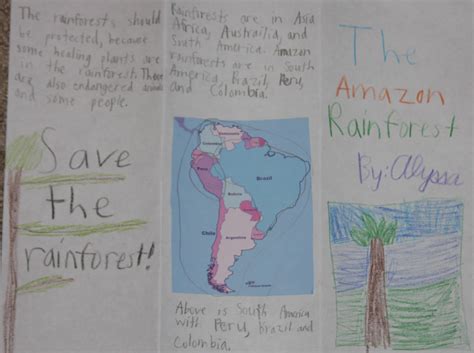 The rainforest, should
be protected, because
some healing plants are
in the rainforest. There
are also endangered
and some people.
Save
the
rainforest!
Rainforests are in Asia
Africa, Austrailia, and
South America. Amazon
rainforests are in South
America, Brazil, Peru,
and Colombia.
Venezuela
Colombia
Peru
Brazil
Bolivia
Chile
Argentina
Above is South America
with Peru, Brazil and
Colombia.
The
Amazon
Rainforest
By: Alyssa